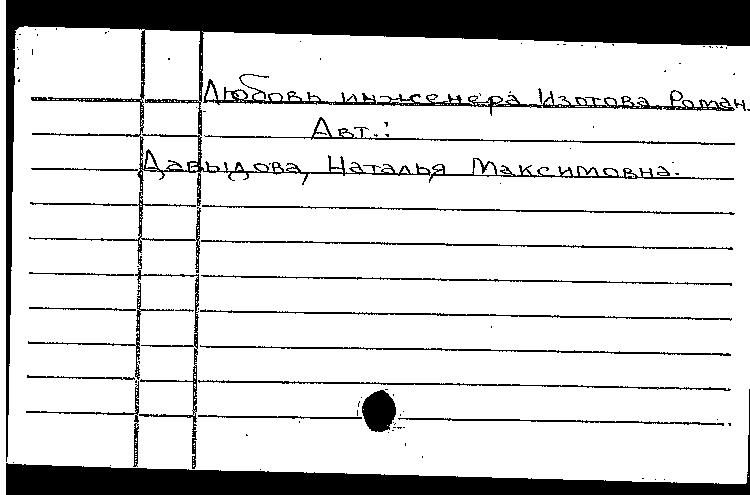 Любовь инженера Изотова Роман.
Авт.:
Давыдова, Наталья Максимовна.